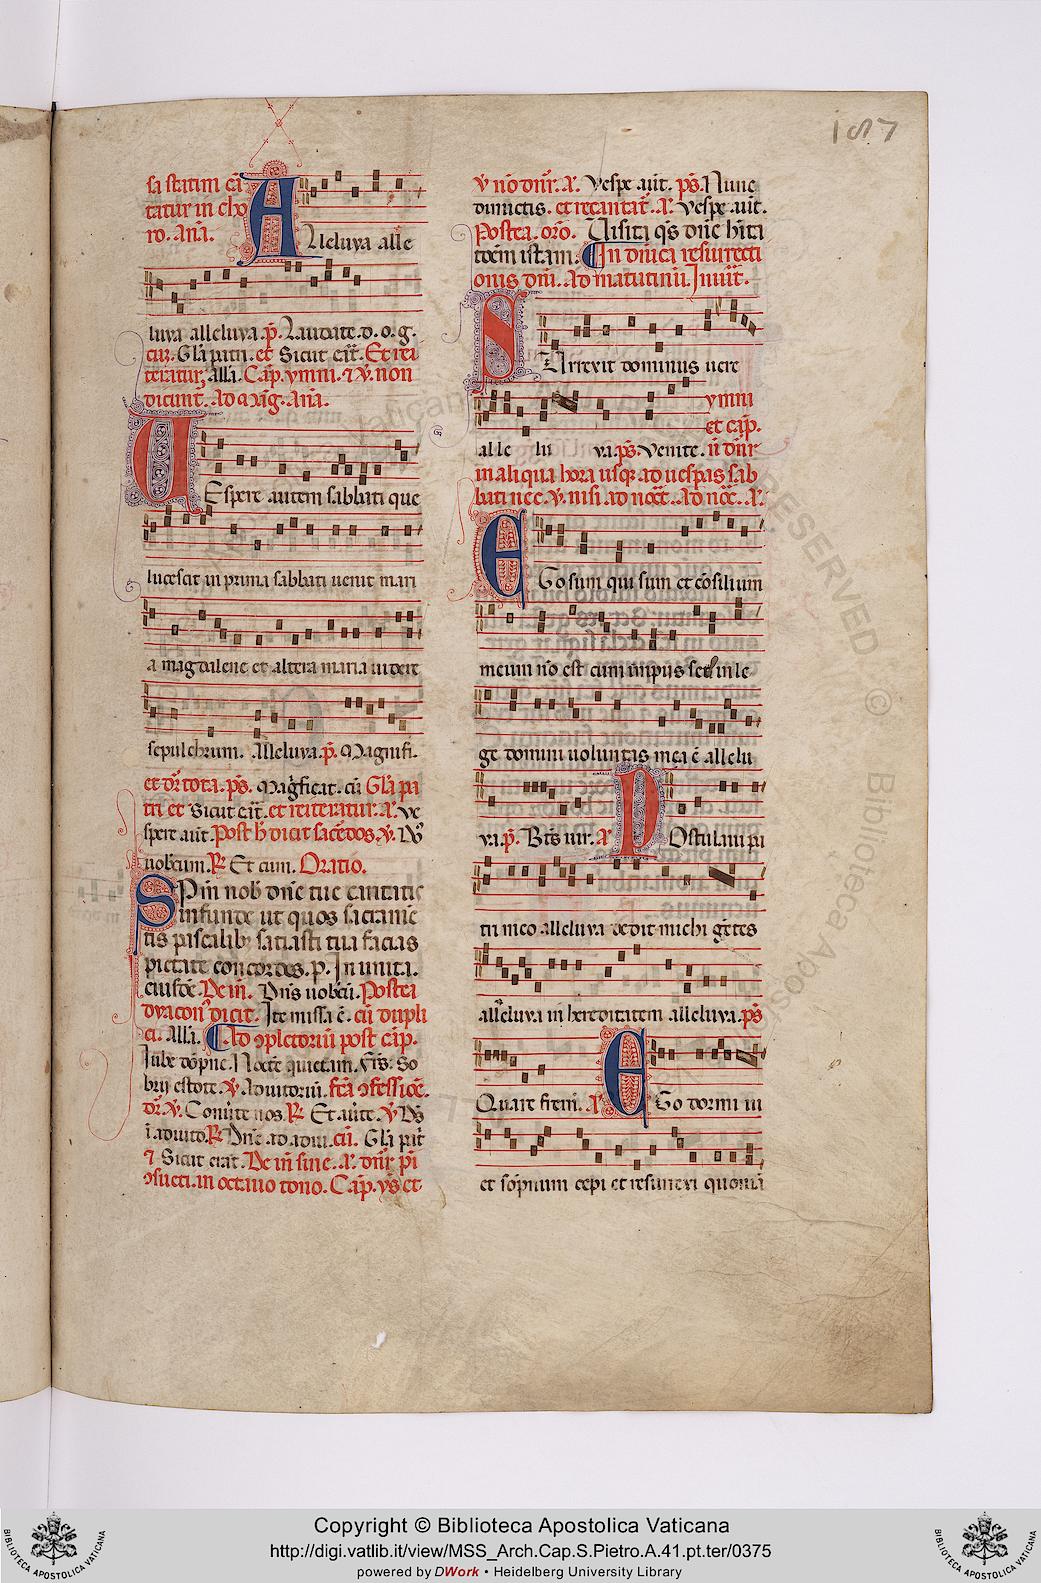 187
sa statim cā
tatur in cho
ro. Anā.
Alleluya alle
luya alleluya. p̄. Laudate. d. o. g.
Glā patri. et Sicut er̄t. Et rei
teratur, all̄a. Cap̄. ymni. ⁊ v̄. non
dicunt. Ad mag̅. Anā.
Vespere autem sabbati que
lucescit in prima sabbati uenit mari
a magdalene et altera maria uidere
sepulchrum. alleluya. p̄. Magnifi.
et dr̄ tota. ps̄. Magn̄ficat. cū Glā pa
tri et Sicut er̄t. et reiteratur. A. Ve
spere aut̄. Post h̄ dicit sac̄dos. v̄. Dn̄s
uobcum. R̄. Et cum. Oratio.
Spm̄ nob̄ dn̄e tue caritatis
infunde ut quos sacrame
tis pascalib; satiasti tua facias
pietate concordes. p. In unita.
eiusdē. Deīn. Dn̄s uobcū. Postea
dyacon᷒ dicit. Ite missa ē. cū dupli
ci. All̄a. Ad 9pletoriū post cap̄.
Iube dōpne. Noctē quietam. Fr̄s. So
brij estote. v̄. Adiutoriū. ftā 9fessiōe.
dr̄. v̄. Conuite nos. R̄. Et auīte. v̄. Ds̄
ī adiuto. R̄. Dn̄e ad adiu. cū. Glā pat̄
⁊ Sicut erat. De īn sine. A. dn̄r ps̄i
9sueti. in octauo tono. Cap̄. ys̄ et
v̄ nō dn̄r. A. Vespe aut̄. ps̄. Nunc
dimictis. et recantat̄. A. Vespe. aut̄.
Postea. orō. Uisita qs̄ dn̄e hīta
toēm istam. In dn̄ica resurrecti
onis dn̄i. Ad matutinū. Inuit̄.
Surrexit dominus uere
ymni
et cap̄.
alle lu ya. ps̄. Venite. ū dn̄r
in aliqua hora usq; ad uesperas sab
bati nec. v̄. nisi ad noct̄. Ad noc̄. A.
Ego sum qui sum et cōsilium
meum nō est cum impiis sed in le
ge domini uoluntas mea ē allelu
ya. p̄. Bt̄s uir. A. Postulaui pa
tri meo alleluya dedit michi gētes
all̄eluya in hereditatem alleluya. ps̄
Quare frem̄. A. Ego dormi ui
et sōpnum cepi et resurrexi quoniā
RESERVED © Biblioteca Apostolica Vaticana
Copyright © Biblioteca Apostolica Vaticana
http://digi.vatlib.it/view/MSS_Arch.Cap.S.Pietro.A.41.pt.ter/0375
powered by DWork • Heidelberg University Library
BIBLIOTECA APOSTOLICA VATICANA
BIBLIOTECA APOSTOLICA VATICANA